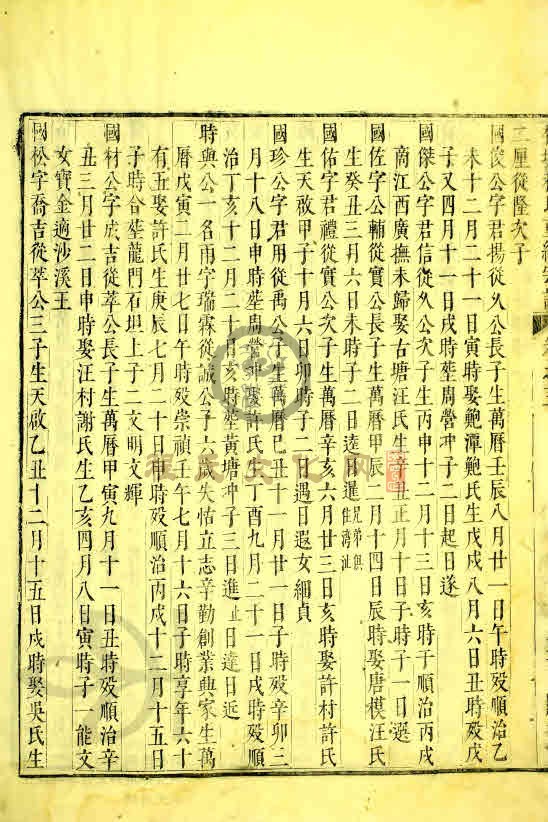 二厘從陞次子
國俊公字君揚從公長子生萬曆壬辰八月廿一日午時殁順治乙
未十二月二十一日寅時娶鮑潭鮑氏生戊戌八月六日丑時殁戊
子又四月十一日戌時塟周營冲子二日起日遂
國傑公字君信從公次子生丙申十二月十三日亥時于順治丙戌
商江西廣撫未歸娶古塘汪氏生辛丑正月十日子時子一日選
國佐字公輔從實公長子生萬曆甲辰二月十四日辰時娶唐模汪氏
生癸丑三月六日未時子二日逵日暹兄弟俱住溝沚
國佑字君禮從實公次子生萬曆辛亥六月廿三日亥時娶許村許氏
生天啟甲子十月六日卯時子二日遇日遐女細貞
國珍公字君用從禹公子生萬曆己丑十一月廿一日子時殁辛卯三
月十八日申時塟周營冲娶許氏生丁酉九月二十一日戌時殁順
治丁亥十二月二十日亥時塟黄塘冲子三日進日達日近
時與公一名雨字瑞霖從誠公子六歲失怙立志辛勤創業興家生萬
曆戊寅二月廿七日午時殁崇禎壬午七月十六日子時享年六十
有五娶許氏生庚辰七月二十日申時殁順治丙戌十二月十五日
子時合塟龍門石垻上子二文明文輝
國材公字成吉從萃公長子生萬曆甲寅九月十一日丑時殁順治辛
丑三月廿二日申時娶汪村謝氏生乙亥四月八日寅時子一能文
女寶金適沙溪王
國松字喬吉從萃公三子生天啟乙丑十二月十五日戌時娶吳氏生